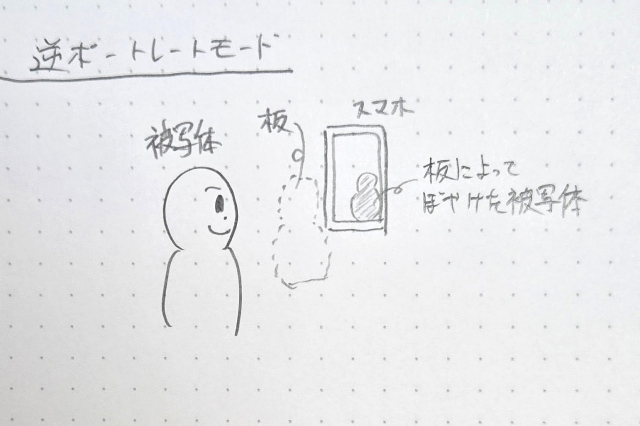 逆ポートレートモード
スマホ
板
被写体
板によって
ぼやけた被写体